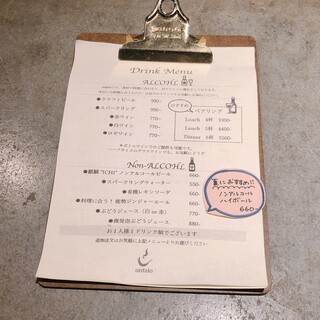 Drink Menu
ALCOHL
●クラフトビール 990-
●スパークリング 990-
●赤ワイン 770-
●白ワイン 770-
●ロゼワイン 770-
おすすめ
ペアリング
Lunch 4杯 3300-
Lunch 5杯 4400-
Dinner 6杯 5500-
Non-ALCOHL
●麒麟 "ICHI" ノンアルコールビール 660-
●スパークリングウォーター 550-
●有機レモンソーダ 660-
●料理に合う!焙煎ジンジャーエール 660-
●ぶどうジュース(白 or 赤) 770-
●微発泡ぶどうジュース 880-
夏におすすめ!!
ノンアルコール
ハイボール
660
お1人様1ドリンク制でございます
追加注文はお気軽に上記メニューよりお選びください